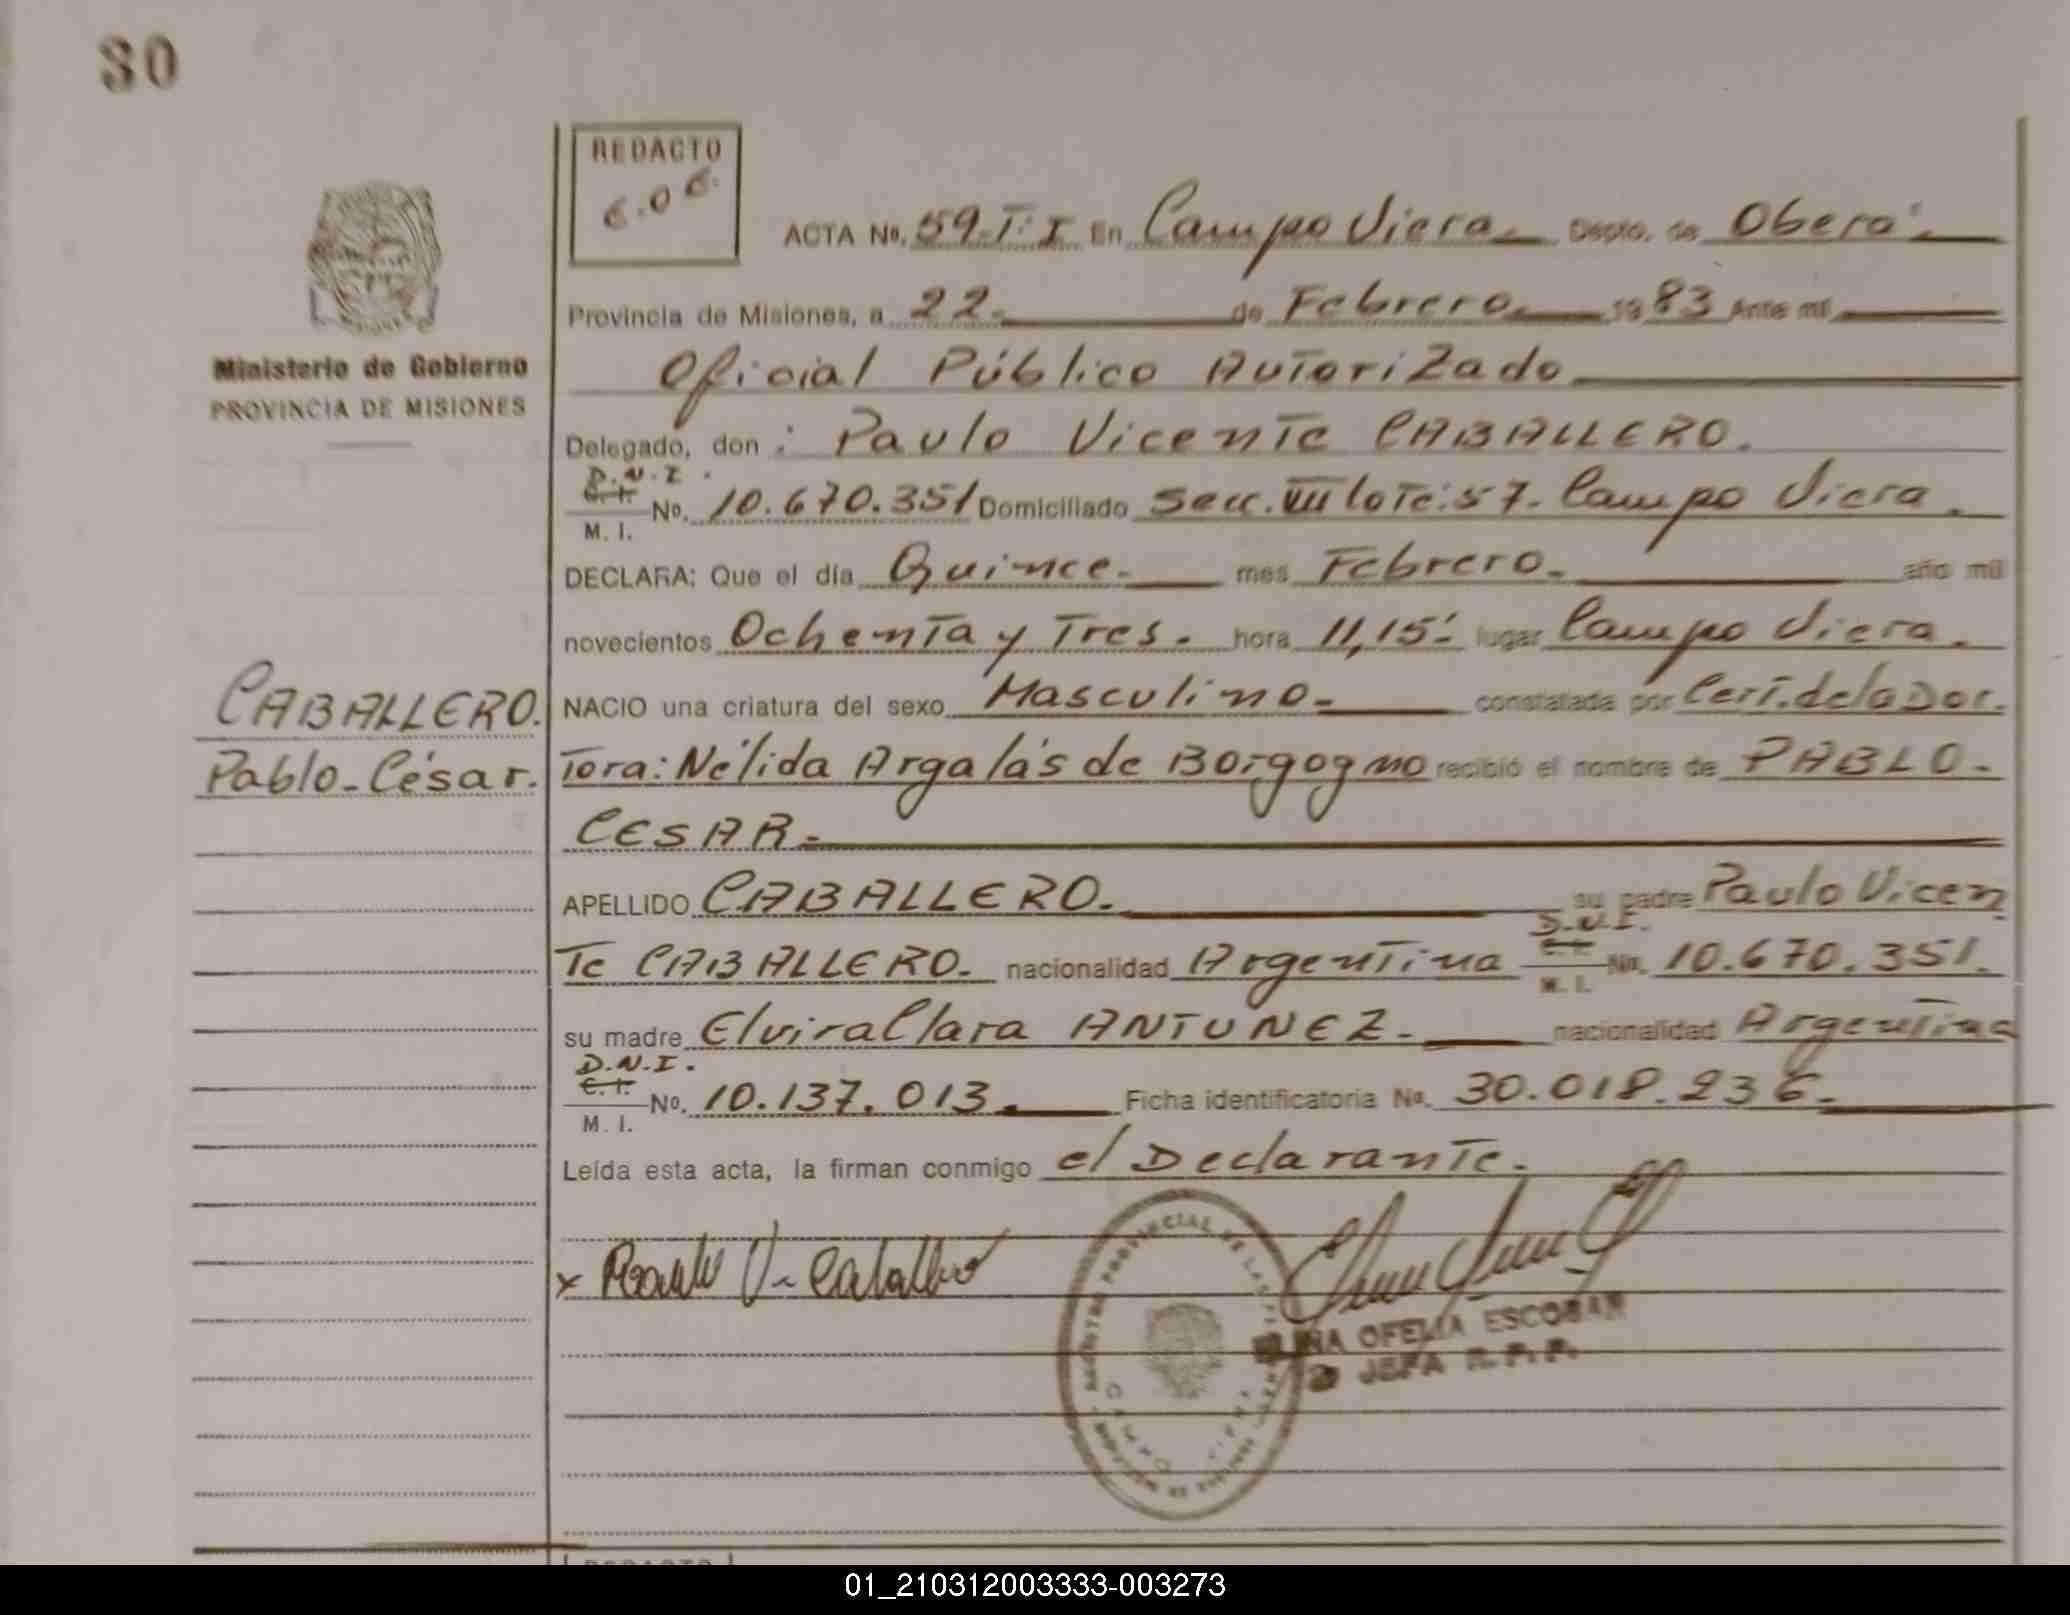 30
REDACTO
E.O.E.
ACTA No. 59-T:I En Campo Viera Depto. de Oberá
Provincia de Misiones, a 22- de Febrero 1983 Ante mí
Ministerio de Gobierno
PROVINCIA DE MISIONES
Oficial Público Autorizado
Delegado, don : Paulo Vicente CABALLERO.
D.N.I.
C.I. No. 10.670.351 Domiciliado Secc. VIII lote: 57. Campo Viera.
M. I.
DECLARA: Que el día Quince- mes Febrero- año mil
novecientos Ochenta y Tres. hora 11,15'- lugar Campo Viera.
CABALLERO.
NACIO una criatura del sexo Masculino- constatada por Cert. de la Doc.
Pablo-César.
Tora: Nélida Argalás de Borgogno recibió el nombre de PABLO-
CESAR-
APELLIDO CABALLERO. su padre Paulo Vicen
D.N.I.
te CABALLERO. nacionalidad Argentina C.I. No. 10.670.351.
M. I.
su madre Elvira Clara ANTUNEZ- nacionalidad Argentina
D.N.I.
C.I. No. 10.137.013. Ficha identificatoria No. 30.018.236-
M. I.
Leída esta acta, la firman conmigo el Declarante.
x Paulo V- Caballero
REGISTRO PROVINCIAL DE LAS PERSONAS
CAMPO VIERA
OFELIA ESCOBAR
JEFA R. P. P.
REDACTO
01_210312003333-003273